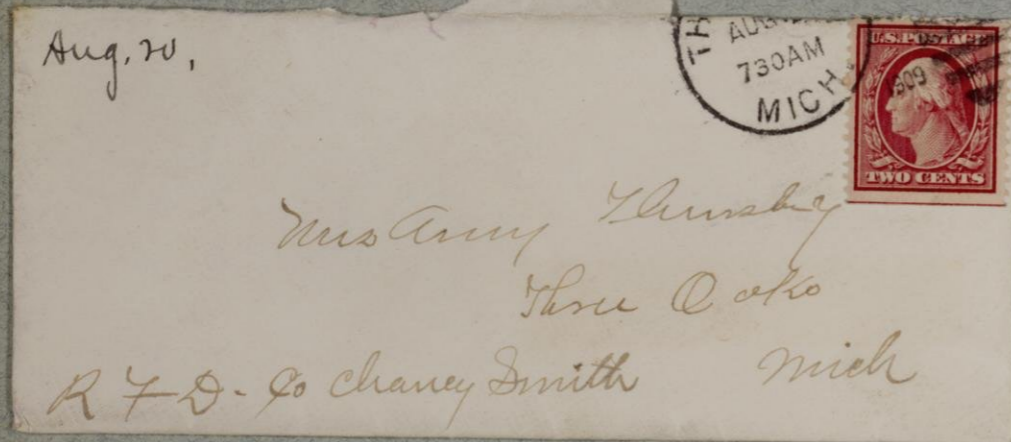 Aug. 20,
TH
AUG
730AM
MICH
1909
U.S. POSTAGE
TWO CENTS
Mrs Amy Hunsley
Three Oaks
Mich
R F D - c/o Chaney Smith